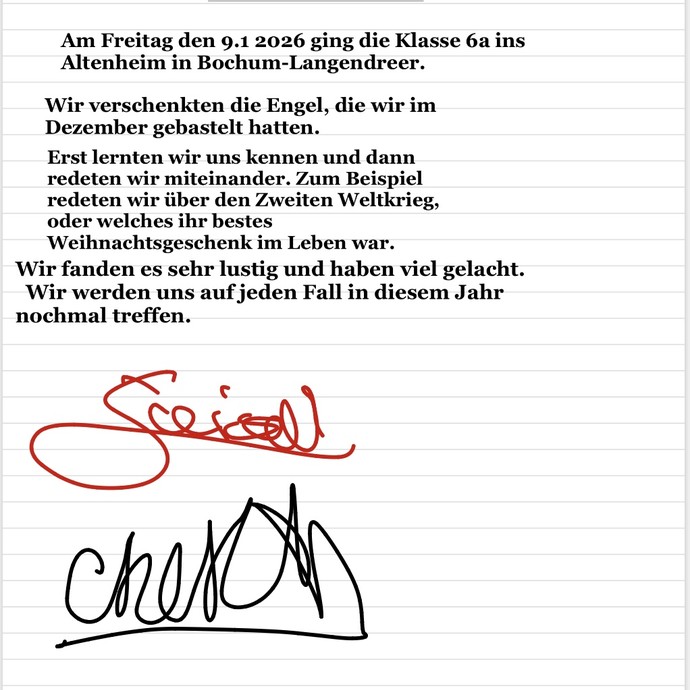 Am Freitag den 9.1 2026 ging die Klasse 6a ins
Altenheim in Bochum-Langendreer.
Wir verschenkten die Engel, die wir im
Dezember gebastelt hatten.
Erst lernten wir uns kennen und dann
redeten wir miteinander. Zum Beispiel
redeten wir über den Zweiten Weltkrieg,
oder welches ihr bestes
Weihnachtsgeschenk im Leben war.
Wir fanden es sehr lustig und haben viel gelacht.
Wir werden uns auf jeden Fall in diesem Jahr
nochmal treffen.